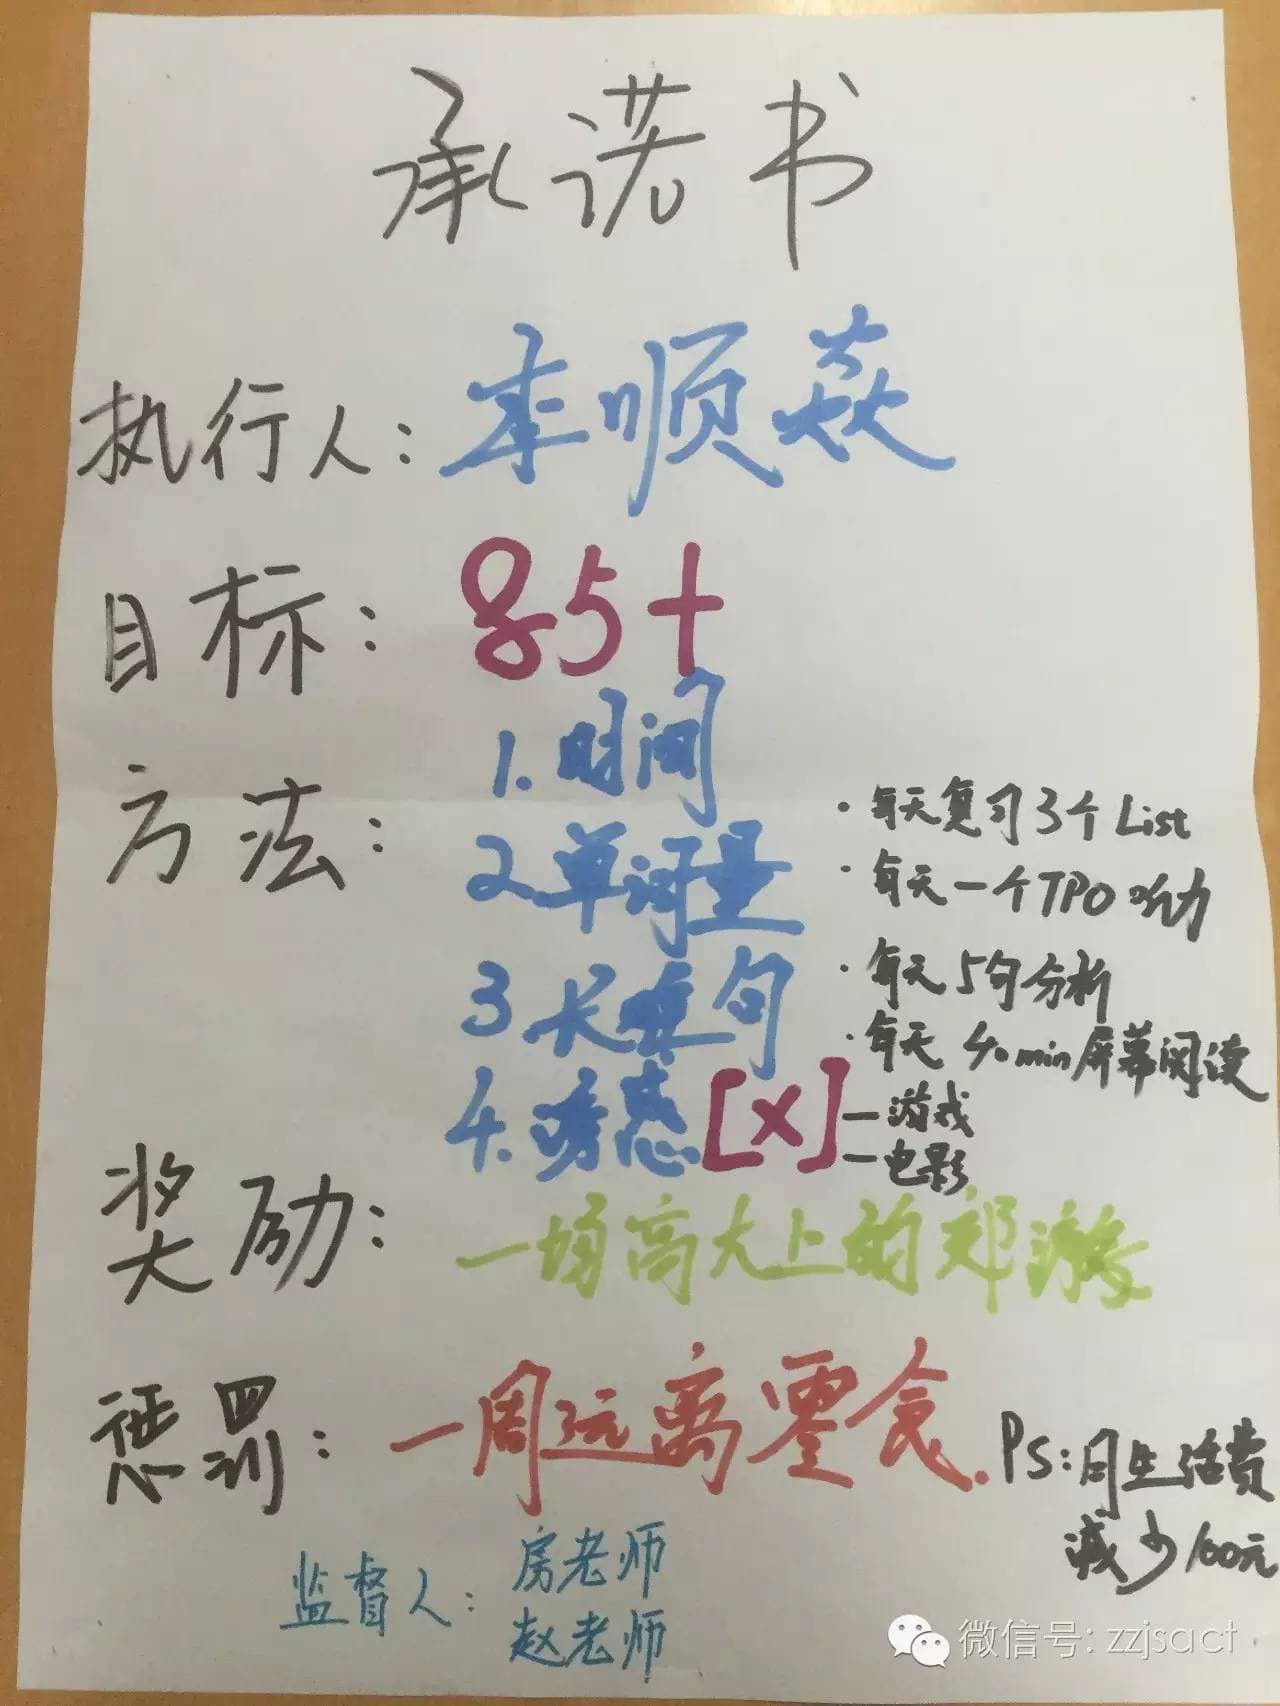 承诺书
执行人：李顺焱
目标：85+
方法：1.时间
2.单词量
3.长难句
4.诱惑[x]
·每天复习3个List
·每天一个TPO听力
·每天5句分析
·每天40min屏幕阅读
—游戏
—电影
奖励：一场高大上的郊游
惩罚：一周远离零食.
Ps：月生活费
减少100元
监督人：房老师
赵老师
微信号: zzjsact